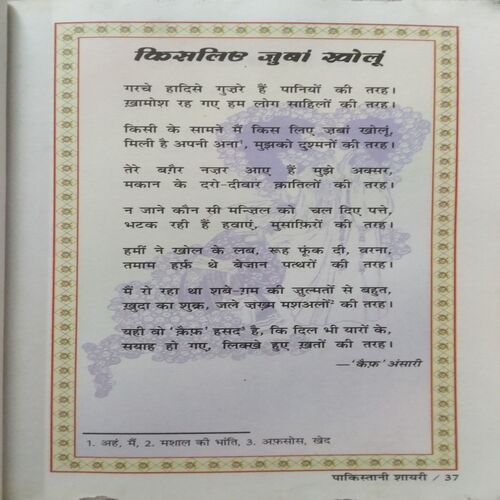 किसलिए जुबां खोलूं
गरचे हादिसे गुज़रे हैं पानियों की तरह।
ख़ामोश रह गए हम लोग साहिलों की तरह।
किसी के सामने मैं किस लिए ज़बां खोलूं,
मिली है अपनी अना¹, मुझको दुश्मनों की तरह।
तेरे बग़ैर नज़र आए हैं मुझे अक्सर,
मकान के दरो-दीवार क़ातिलों की तरह।
न जाने कौन सी मन्ज़िल को चल दिए पत्ते,
भटक रही हैं हवाएं, मुसाफ़िरों की तरह।
हमीं ने खोल के लब, रूह फूंक दी, वरना,
तमाम हर्फ़ थे बेजान पत्थरों की तरह।
मैं रो रहा था शबे-ग़म की ज़ुल्मतों से बहुत,
ख़ुदा का शुक्र, जले ज़ख़्म मशअलों² की तरह।
यही वो 'क़ैफ़' हसद³ है, कि दिल भी यारों के,
सयाह हो गए, लिक्खे हुए ख़तों की तरह।
—'कैफ़' अंसारी
1. अहं, मैं, 2. मशाल की भांति, 3. अफ़सोस, खेद
पाकिस्तानी शायरी / 37